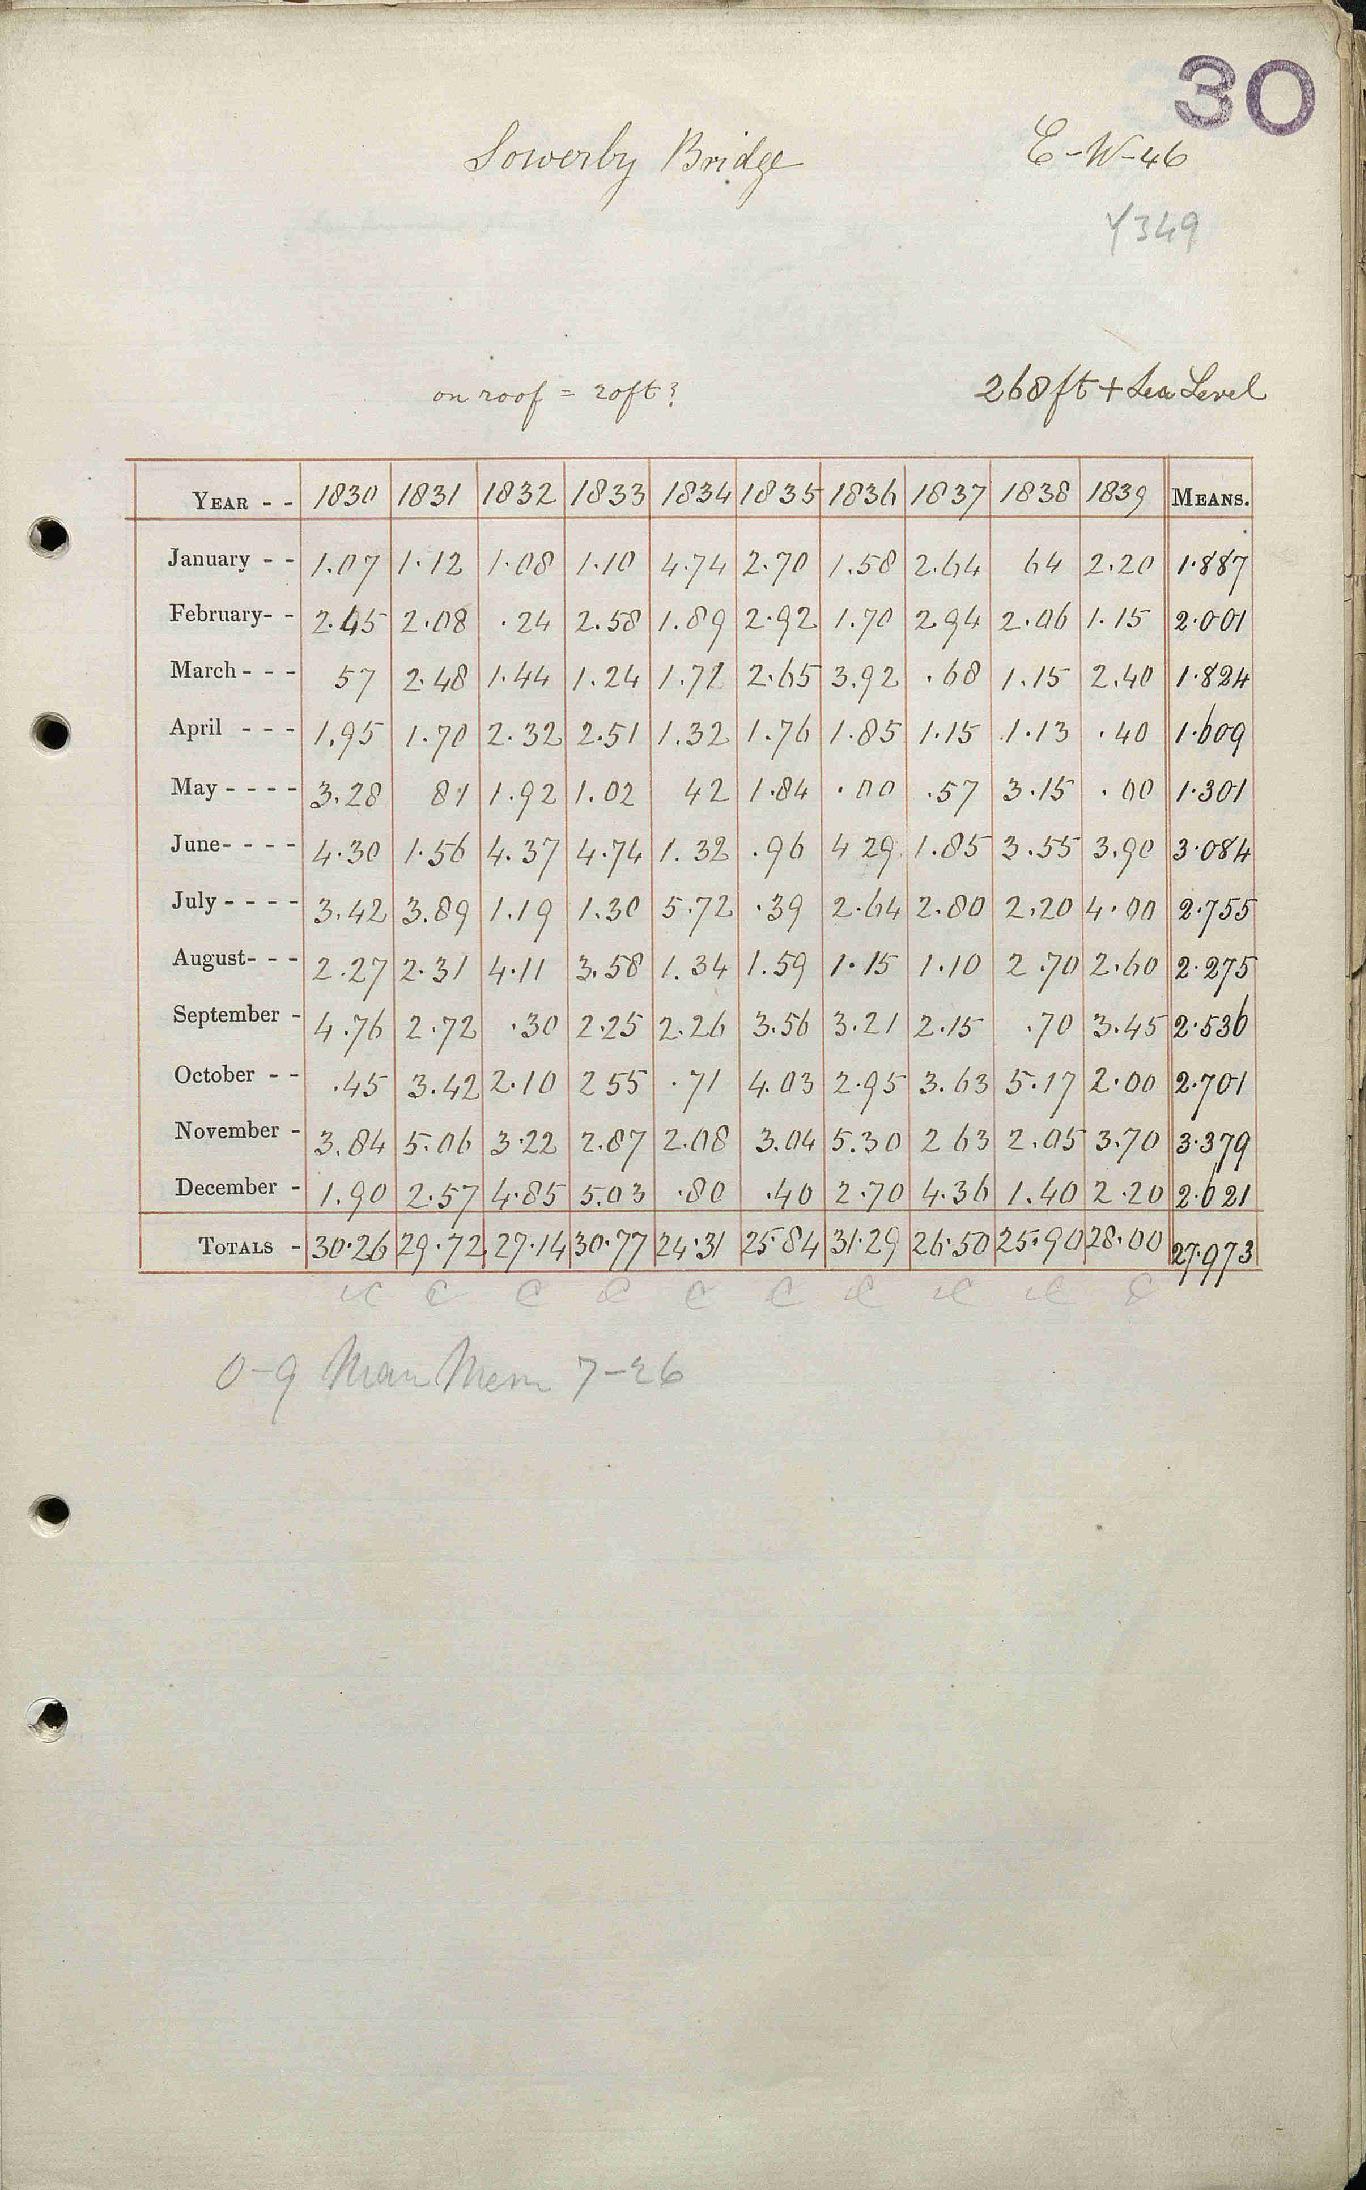 30
Sowerby Bridge E-W-46
Y349
on roof = 20ft? 268ft + Sea Level
YEAR - - 1830 1831 1832 1833 1834 1835 1836 1837 1838 1839 MEANS.
January - - 1.07 1.12 1.08 1.10 4.74 2.70 1.58 2.64 64 2.20 1.887
February- - 2.45 2.08 .24 2.58 1.89 2.92 1.70 2.94 2.06 1.15 2.001
March - - - 57 2.48 1.44 1.24 1.71 2.65 3.92 .68 1.15 2.40 1.824
April - - - 1.95 1.70 2.32 2.51 1.32 1.76 1.85 1.15 1.13 .40 1.609
May - - - - 3.28 81 1.92 1.02 42 1.84 .00 .57 3.15 .00 1.301
June- - - - 4.30 1.56 4.37 4.74 1.32 .96 4 29 1.85 3.55 3.90 3.084
July - - - - 3.42 3.89 1.19 1.30 5.72 .39 2.64 2.80 2.20 4.00 2.755
August- - - 2.27 2.31 4.11 3.58 1.34 1.59 1.15 1.10 2.70 2.60 2.275
September - 4.76 2.72 .30 2.25 2.26 3.56 3.21 2.15 .70 3.45 2.536
October - - .45 3.42 2.10 2 55 .71 4.03 2.95 3.63 5.17 2.00 2.701
November - 3.84 5.06 3.22 2.87 2.08 3.04 5.30 2 63 2.05 3.70 3.379
December - 1.90 2.57 4.85 5.03 .80 .40 2.70 4.36 1.40 2.20 2.621
TOTALS - 30.26 29.72 27.14 30.77 24.31 25.84 31.29 26.50 25.90 28.00 27.973
C C C C C C C C C C
0-9 Man Mem 7-26